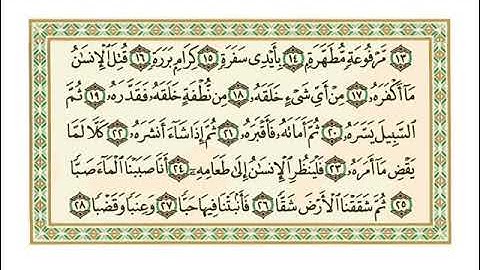 ١٣ مَّرْفُوعَةٍ مُّطَهَّرَةٍ ١٤ بِأَيْدِى سَفَرَةٍ ١٥ كِرَامٍ بَرَرَةٍ ١٦ قُتِلَ الْإِنسَٰنُ
مَا أَكْفَرَهُۥ ١٧ مِنْ أَىِّ شَىْءٍ خَلَقَهُۥ ١٨ مِن نُّطْفَةٍ خَلَقَهُۥ فَقَدَّرَهُۥ ١٩ ثُمَّ
السَّبِيلَ يَسَّرَهُۥ ٢٠ ثُمَّ أَمَاتَهُۥ فَأَقْبَرَهُۥ ٢١ ثُمَّ إِذَا شَاءَ أَنشَرَهُۥ ٢٢ كَلَّا لَمَّا
يَقْضِ مَا أَمَرَهُۥ ٢٣ فَلْيَنظُرِ الْإِنسَٰنُ إِلَىٰ طَعَامِهِۦ ٢٤ أَنَّا صَبَبْنَا الْمَاءَ صَبًّا
٢٥ ثُمَّ شَقَقْنَا الْأَرْضَ شَقًّا ٢٦ فَأَنۢبَتْنَا فِيهَا حَبًّا ٢٧ وَعِنَبًا وَقَضْبًا ٢٨